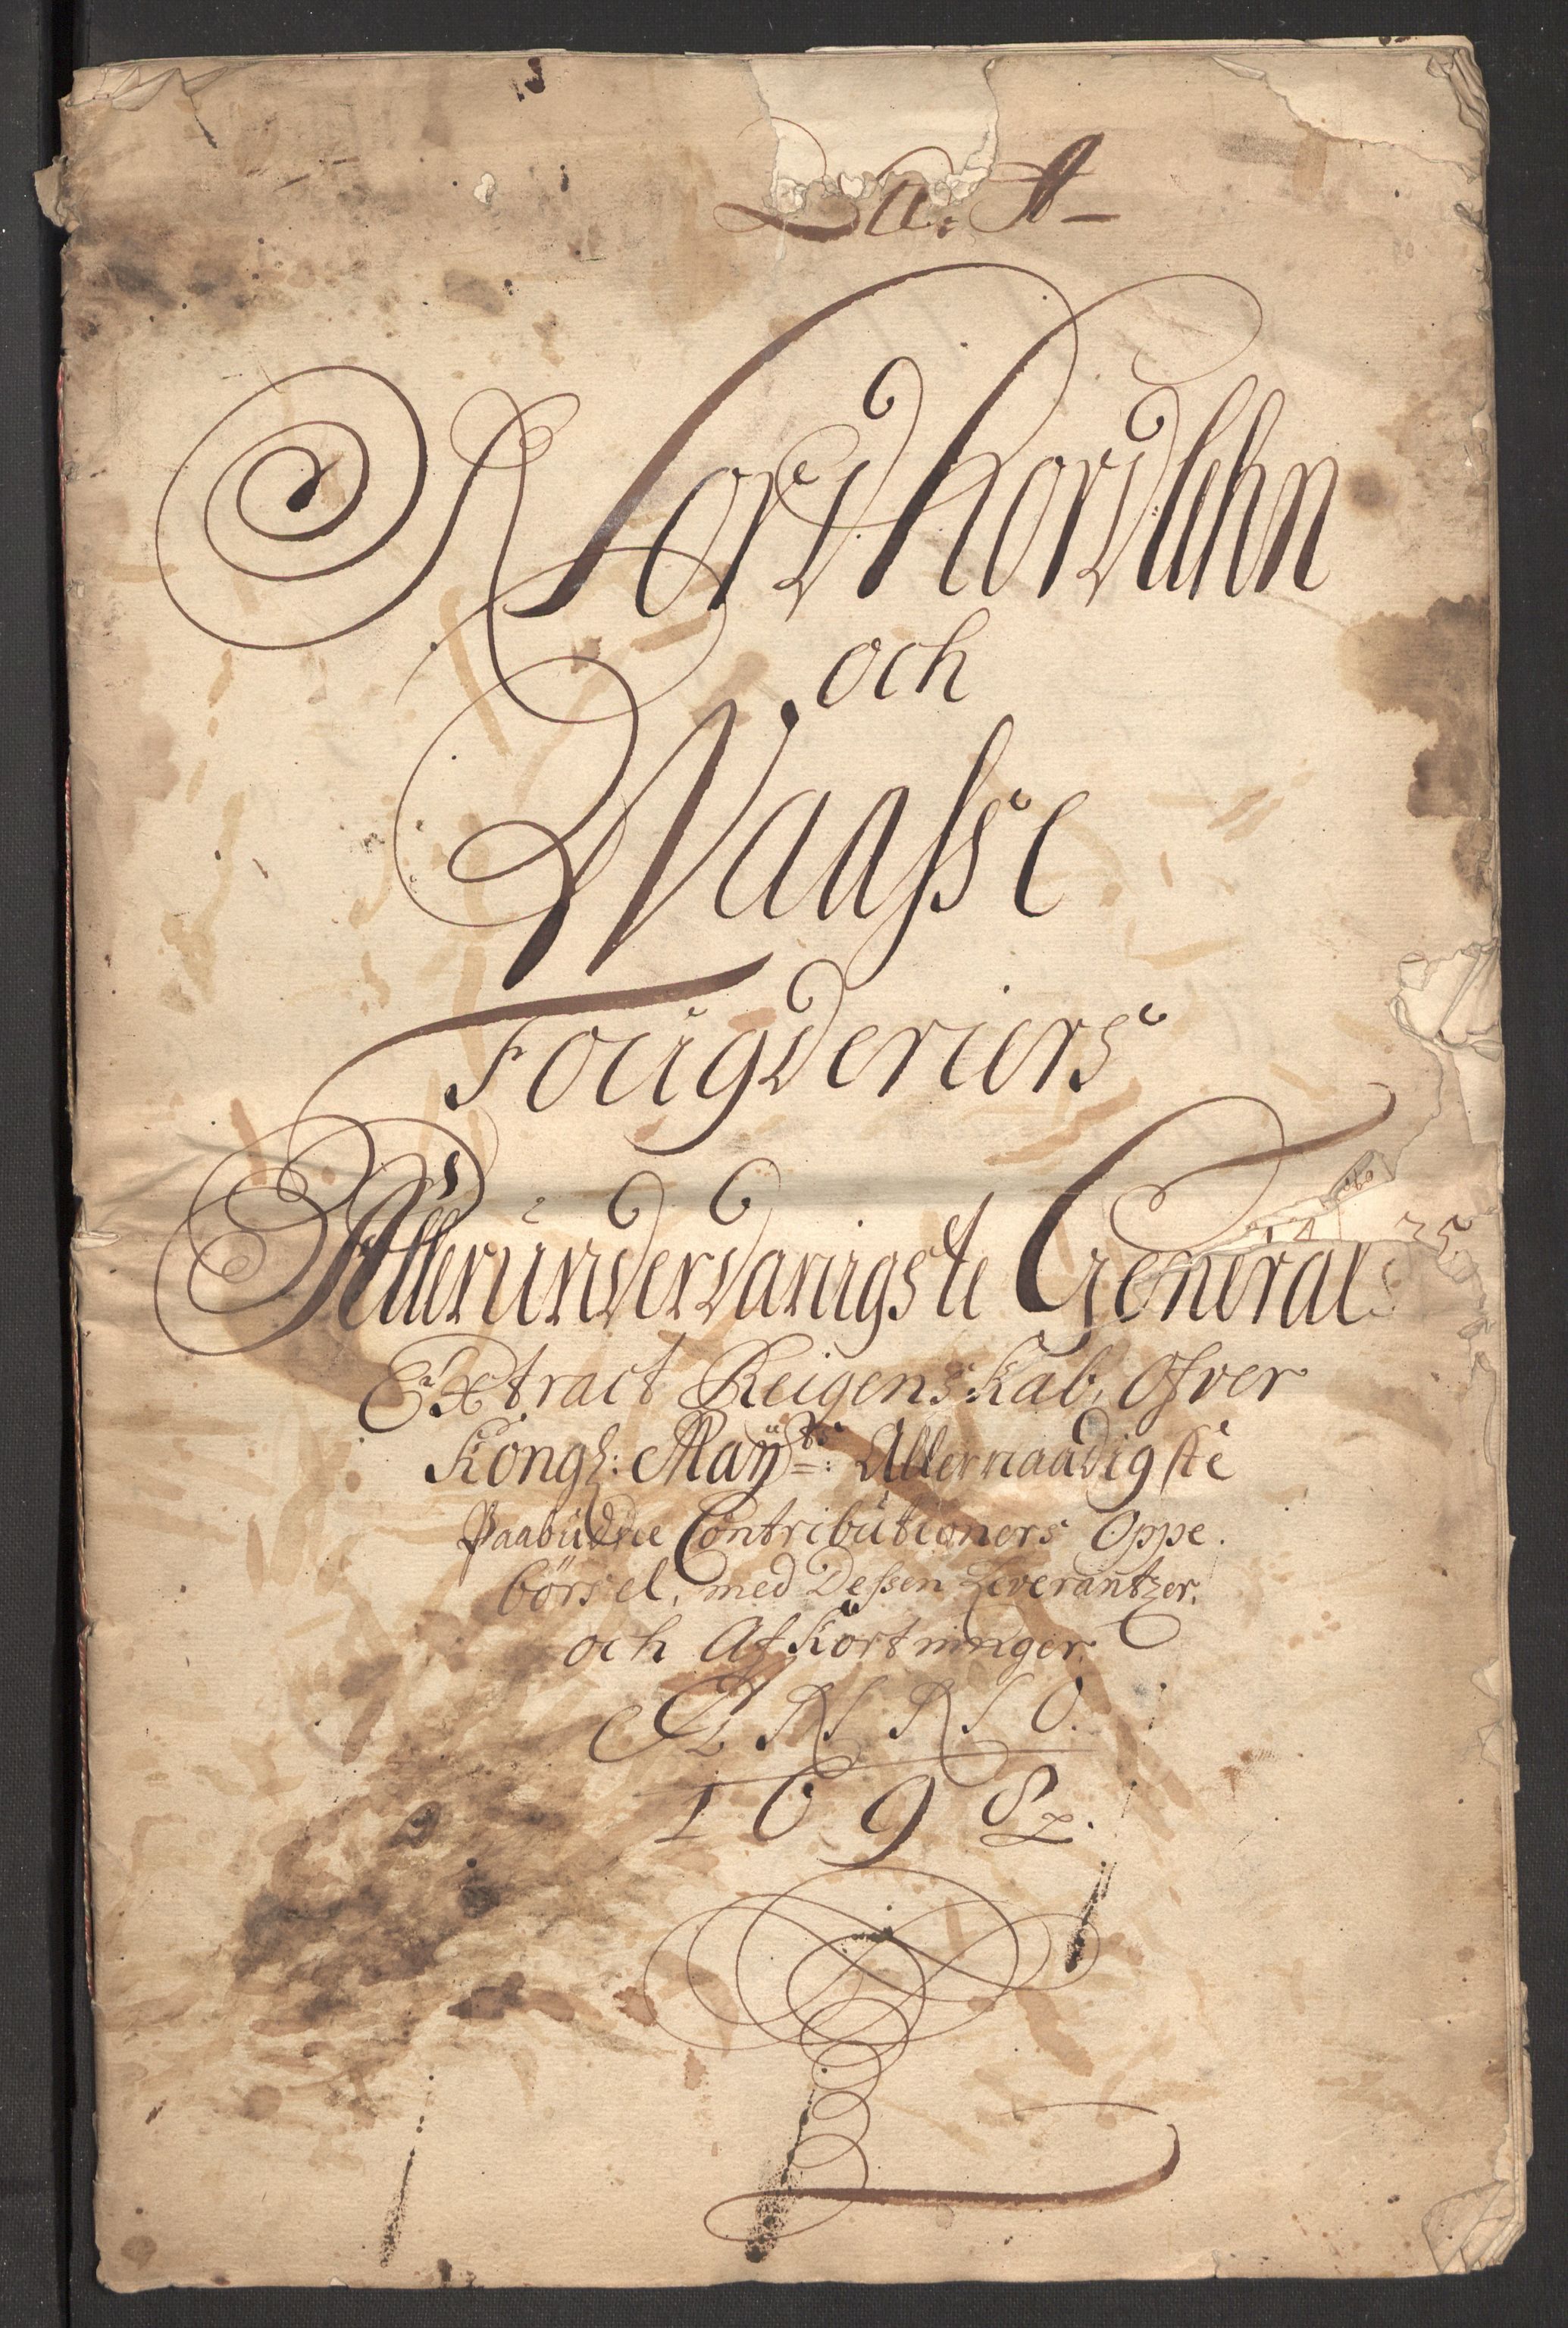 La. A
Nordhordlehn
och
Waasse
Fougderiers
Allerunderdanigste General
Extract Reigenskab, Ofver
Kongl: Maÿts: Allernaadigste
Paabudne Contributioners Oppe.
börsel, med Dessen Leverantzer,
och Afkortninger.
PRO ANNO.
1698